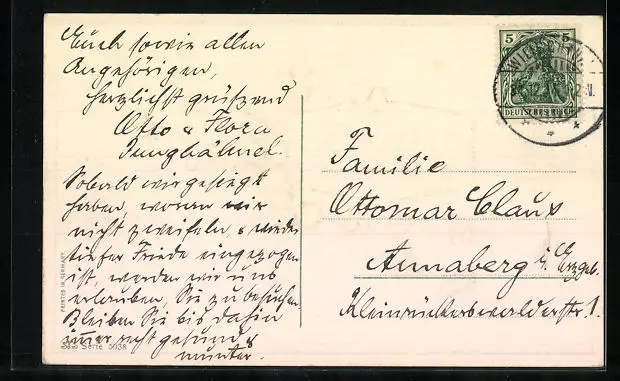 Euch sowie allen
Angehörigen,
herzlichst grüßend
Otto u Flora
Junghähnel.
Sobald wir gesiegt
haben, woran wir
nicht zweifeln, & wieder
tiefer Friede eingezogen
ist, werden wir uns
erlauben, Sie zu besuchen.
Bleiben Sie bis dahin
immer recht gesund &
munter.
PRINTED IN GERMANY
Serie 5038
5 5
DEUTSCHES REICH
Familie
Ottomar Claus
Annaberg i. Erzgeb.
Kleinrückerswalderstr. 1.